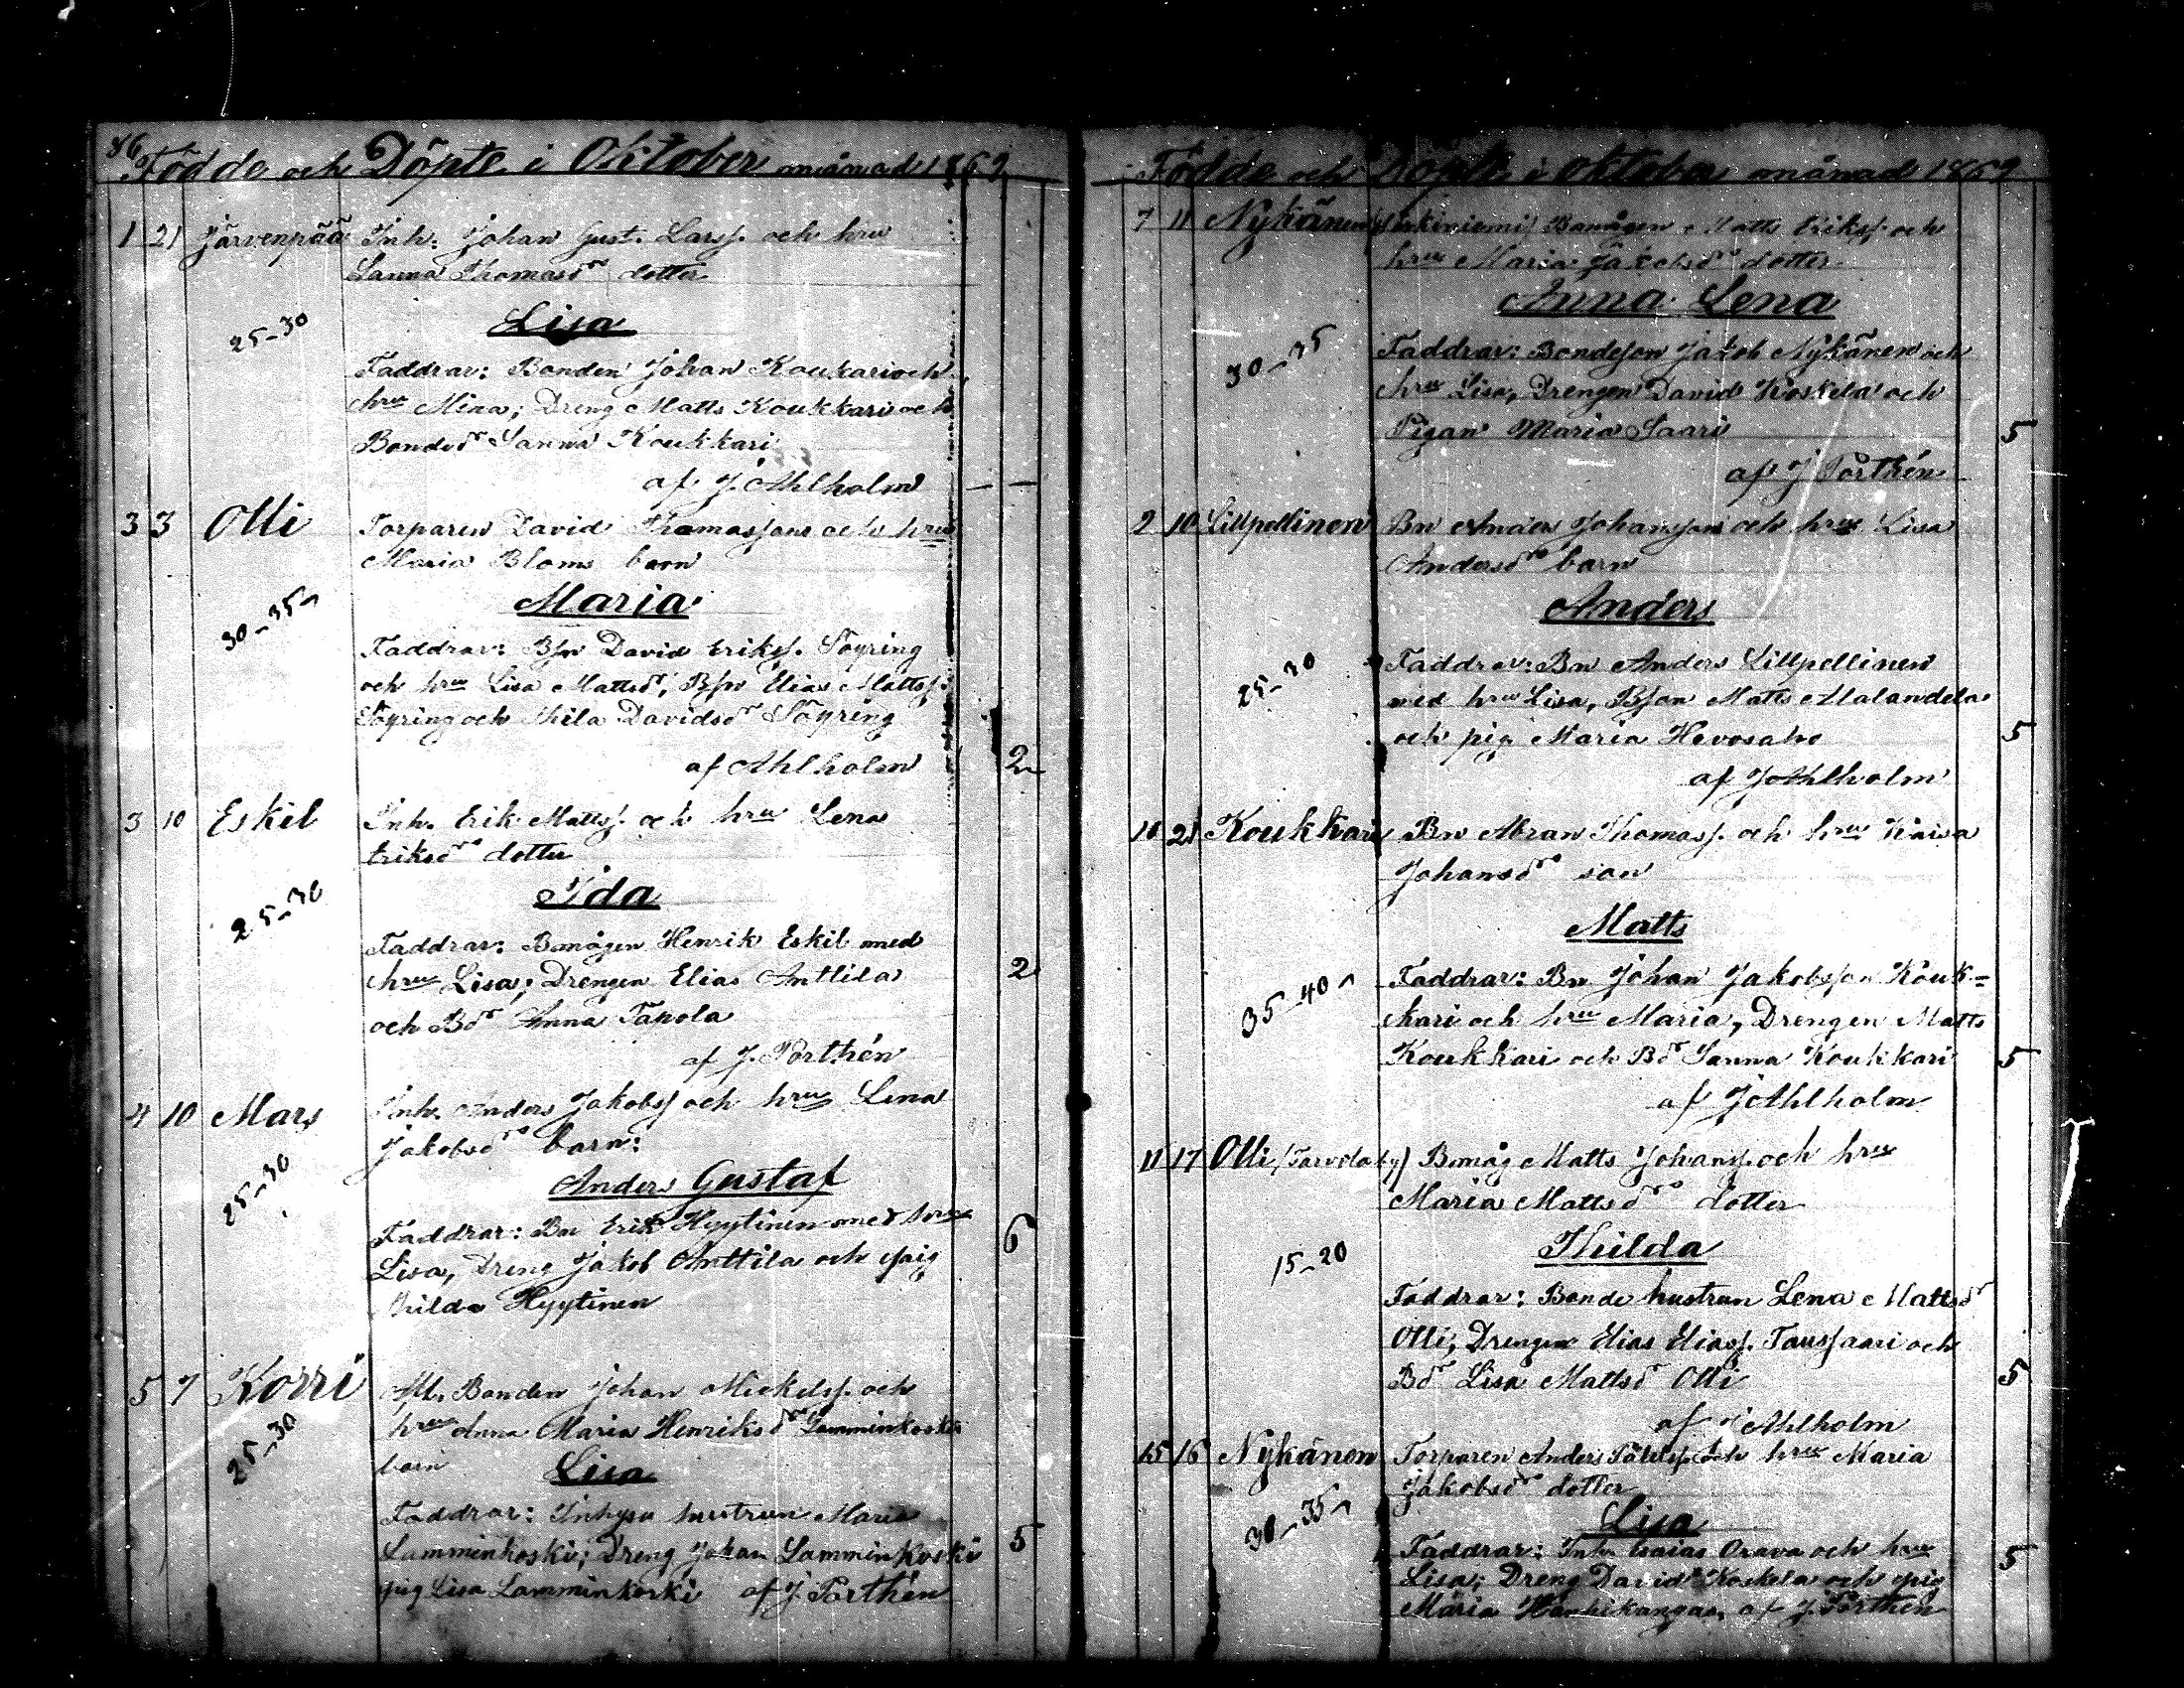 86
Födde och Döpte i Oktober månad 1869
1 21 Järvenpää Inh. Johan Gust. Larss. och hru
Sanna Thomasdr dotter
Lisa
25-30
Faddrar: Bonden Johan Koukari och
hru Mina; Dreng Matts Koukkari och
Bondedr Sanna Koukkari
af J. Ahlholm
3 3 Olli Torparen David Thomassons och hru
Maria Bloms barn
Maria
30-35
Faddrar: Bsn David Eriks. Söyring
och hru Lisa Mattsdr, Bsn Elias Matts.
Söyring och Hila Davidsdr Söyring
af Ahlholm 2
3 10 Eskil Inh. Erik Matts. och hru Lena
Eriksdr dotter
Ida
25-30
Faddrar: Bmågen Henrik Eskil med
hru Lisa; Drengen Elias Anttila 2
och Bdr Anna Tapola
af J. Porthén
4 10 Mars Inh. Anders Jakobs. och hru Lena
Jakobsdr barn:
Anders Gustaf
25-30
Faddrar: Bn Erik Hyytinen med hru 6
Lisa, Dreng Jakob Anttila och pig
Hilda Hyytinen
5 7 Korri Afl. Bonden Johan Mickelss. och
hru Anna Maria Henriksdr Lamminkoski
barn Lisa
25-30
Faddrar: Inhyse hustrun Maria
Lamminkoski; Dreng Johan Lamminkoski 5
pig Lisa Lamminkoski af J. Porthén
Födde och Döpte i Oktober månad 1869
7 11 Nykänen Bomågen Matts Eriks. och
hru Maria Jakobsdr dotter
Anna Lena
30-35
Faddrar: Bondeson Jakob Nykänen och
hru Lisa, Drengen David Koskela och
Pigan Maria Saari 5
af J Porthén
2 10 Lillpellinen Bn Anders Johansson och hru Lisa
Andersdr barn
Anders
25-30
Faddrar: Bn Anders Lillpellinen
med hru Lisa, Bson Matts Malandela
och pig Maria Hevosaho 5
af J Ahlholm
10 21 Koukkari Bn Abran Thomass. och hru Kaisa
Johansdr son
Matts
35-40
Faddrar: Bn Johan Jakobsson Kouk-
kari och hru Maria, Drengen Matts
Koukkari och Bdr Sanna Koukkari 5
af J Ahlholm
11 17 Olli (Tarvola by) Bmåg Matts Johans. och hru
Maria Mattsdr dotter
Hilda
15-20
Faddrar: Bonde hustrun Lena Mattsdr
Olli; Drengen Elias Elias. Taussaari och
Bdr Lisa Mattsdr Olli 5
af J Ahlholm
15 16 Nykänen Torparen Anders och hru Maria
Jakobsdr dotter
Lisa
30-35
Faddrar: Inh. Esaias Orava och hru 5
Lisa; Dreng David Koskela och pig
Maria Hanhikangas, af J. Porthén